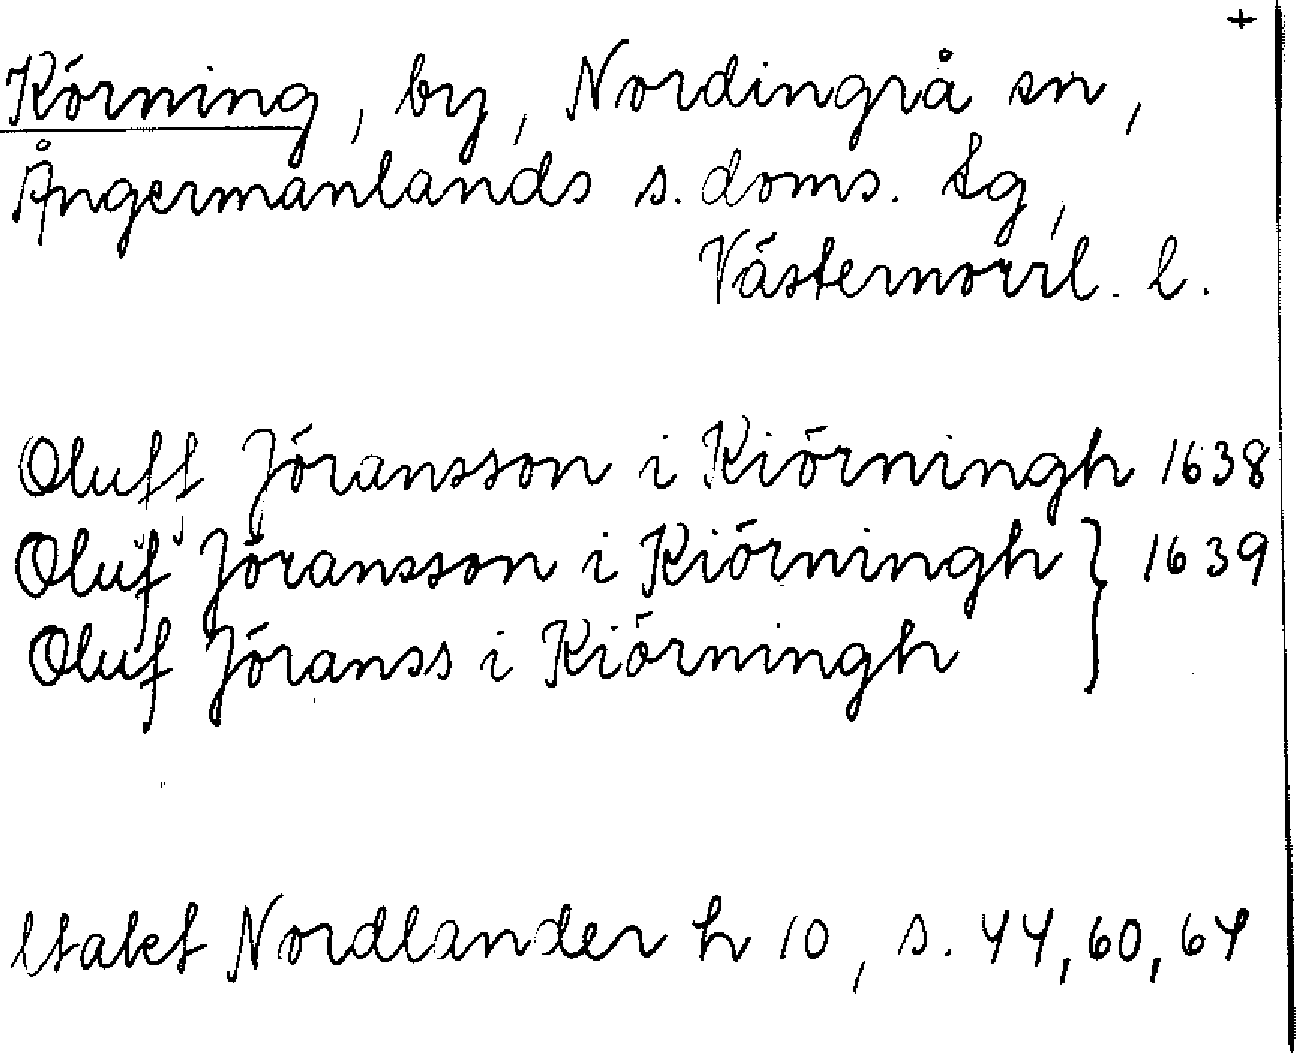 +
Körning, by, Nordingrå sn,
Ångermanlands s. doms. tg,
Västernorrl. l.
Oluff Jöransson i Kiörningh 1638
Oluf Jöransson i Kiörningh } 1639
Oluf Jöranss i Kiörningh
Utaket Nordlander h 10, s. 44, 60, 64